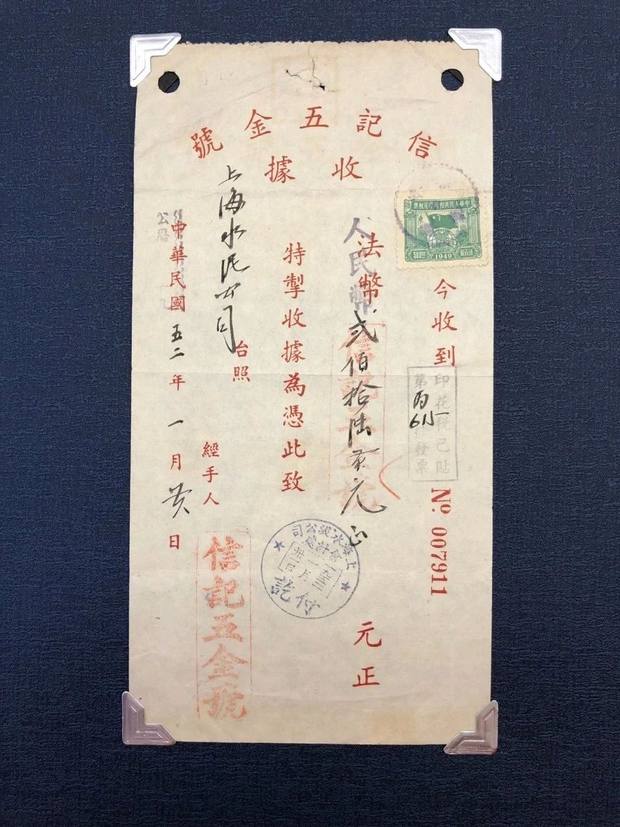 信記五金號
收據
1949
今收到 № 007911
印花稅已貼
第丙615發票
人民幣
法幣貳佰拾陸元正 元正
信記五金號
特掣收據為憑此致
上海水泥公司
付訖
上海水泥公司台照
經手人
信記五金號
公曆
中華民國五二年一月日